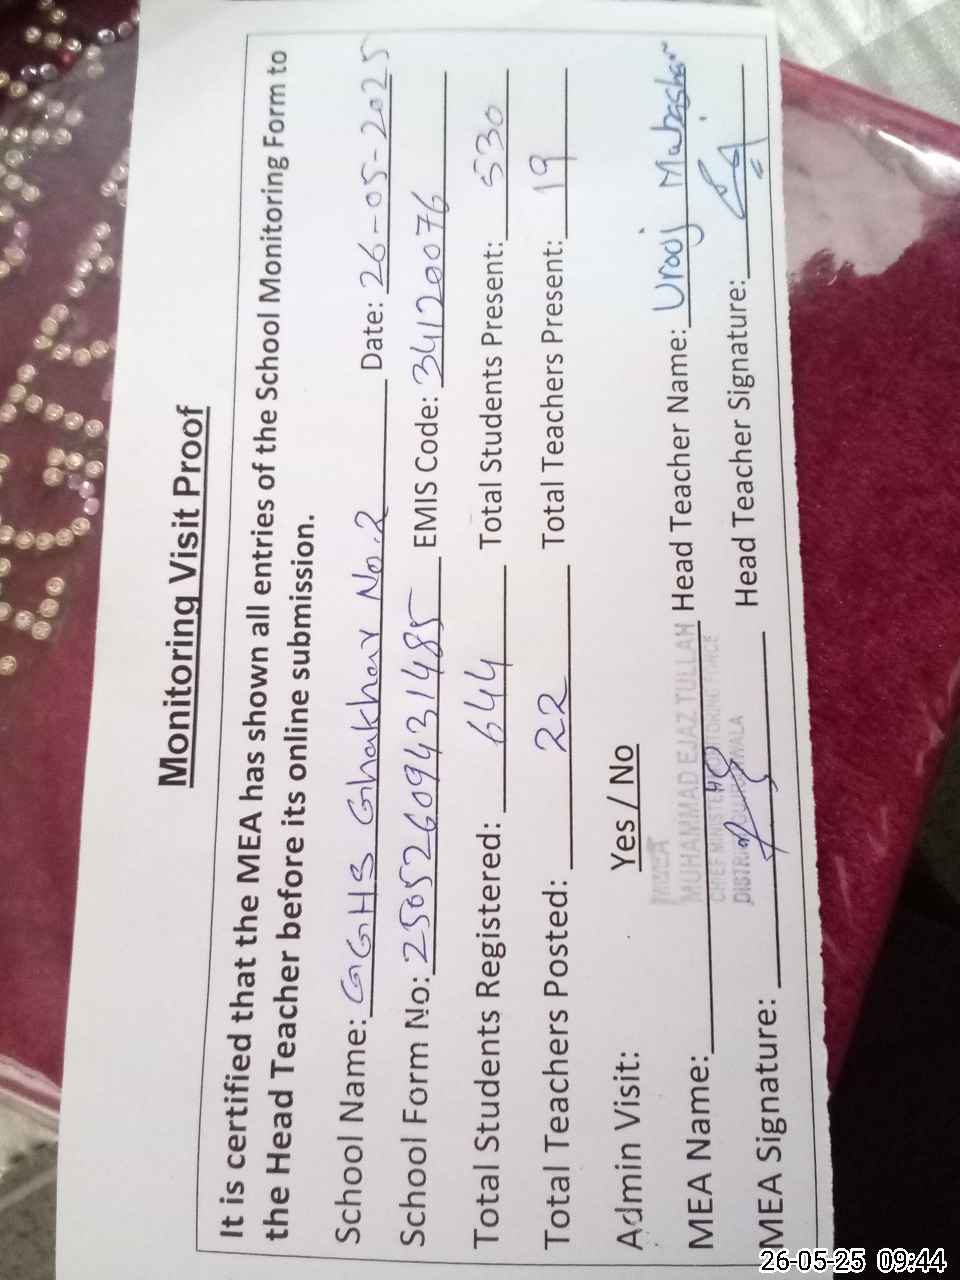 Monitoring Visit Proof
It is certified that the MEA has shown all entries of the School Monitoring Form to
the Head Teacher before its online submission.
School Name: GGHS Ghakhar No.2 Date: 26-05-2025
School Form No: 25052609431485 EMIS Code: 34120076
Total Students Registered: 644 Total Students Present: 530
Total Teachers Posted: 22 Total Teachers Present: 19
Admin Visit: Yes / No
MEA Name: MUHAMMAD EJAZ TULLAH Head Teacher Name: Urooj Mubashar
CHIEF MINISTER MONITORING FORCE
MEA Signature: Head Teacher Signature:
26-05-25 09:44